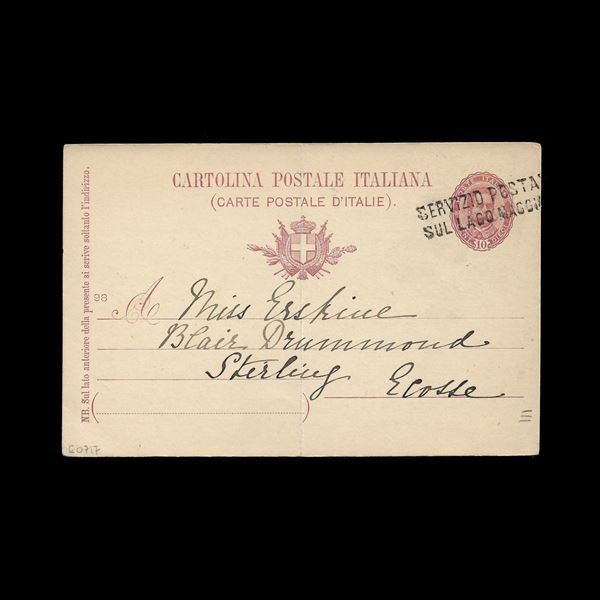 CARTOLINA POSTALE ITALIANA
(CARTE POSTALE D'ITALIE).
SERVIZIO POSTA
SUL LAGO MAGGI
10
NB. Sul lato anteriore della presente si scrive soltanto l'indirizzo.
98
A Miss Erskine
Blair Drummond
Sterling Ecosse
E0717